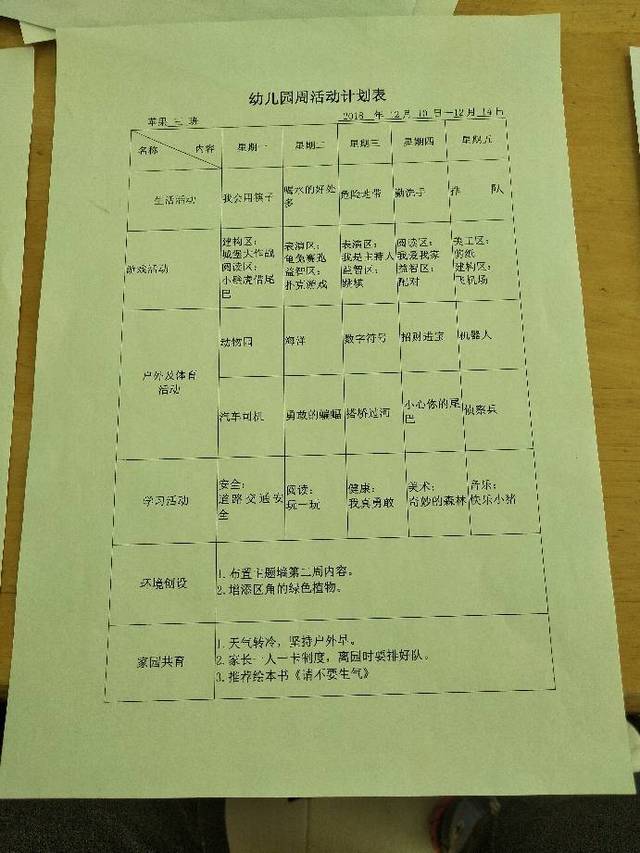 幼儿园周活动计划表
苹果 三 班 2018 年 12 月 10 日—12 月 14日
名称 内容 星期一 星期二 星期三 星期四 星期五
生活活动 我会用筷子 喝水的好处多 危险地带 勤洗手 排 队
游戏活动
建构区：
城堡大作战
阅读区：
小壁虎借尾
巴
表演区：
龟兔赛跑
益智区：
扑克游戏
表演区：
我是主持人
益智区：
跳棋
阅读区：
我爱我家
益智区：
配对
美工区：
剪纸
建构区：
飞机场
户外及体育
活动
动物园 海洋 数字符号 招财进宝 机器人
汽车司机 勇敢的蝙蝠 搭桥过河 小心你的尾巴 侦察兵
学习活动
安全：
道路交通安
全
阅读：
玩一玩
健康：
我真勇敢
美术：
奇妙的森林
音乐：
快乐小猪
环境创设
1.布置主题墙第二周内容。
2.增添区角的绿色植物。
家园共育
1.天气转冷，坚持户外早。
2.家长一人一卡制度，离园时要排好队。
3.推荐绘本书《请不要生气》